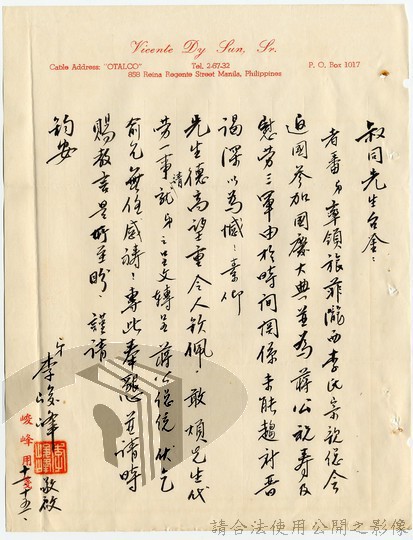 Vicente Dy Sun, Sr.
Cable Address: "OTALCO"
Tel. 2-67-32
P. O. Box 1017
858 Reina Regente Street Manila, Philippines
叔同先生台鑒：
者番弟率領旅菲隴西李氏宗親總會
返國參加國慶大典並為蔣公祝壽及
慰勞三軍由於時間関係未能趨府晉
謁深以為憾：素仰
先生德高望重令人欽佩 敢煩先生代
勞一事請就弟之呈文轉呈蔣公總統伏乞
俞允無任感禱：專此奉懇並請時
賜教言是所至盼：謹請
鈞安
弟 李峻峰 敬啟
峻峰用箋
十、十五、
請合法使用公開之影像